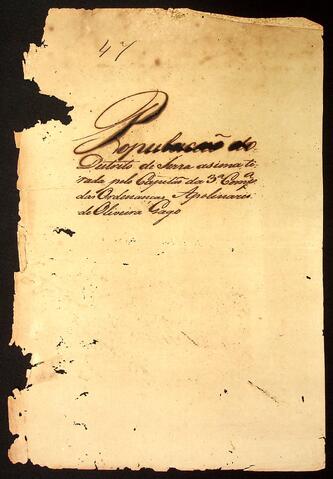 47
População do
Destrito de Serra asima ti
rada pelo Capitão da 3ª Compª
das Ordenancas Apolinario
de Oliveira Gago